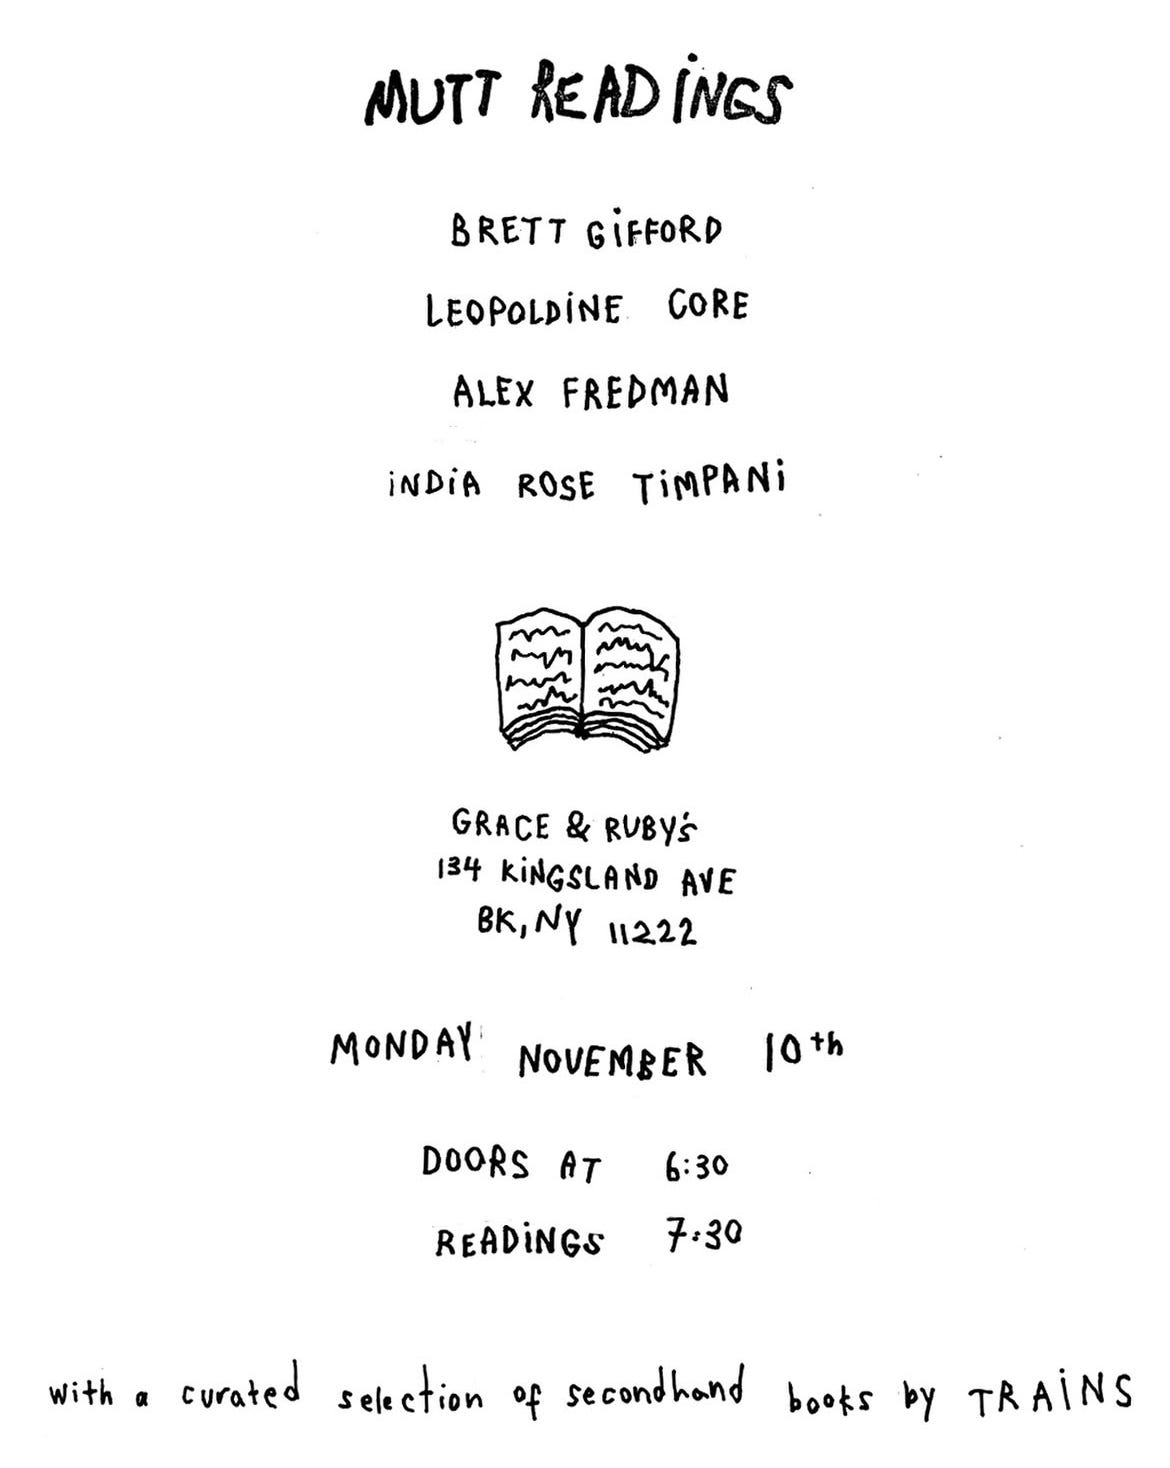 MUTT READiNGS
BRETT GiFFORD
LEOPOLDiNE CORE
ALEX FREDMAN
iNDiA ROSE TiMPANi
GRACE & RUBY's
134 KiNGSLAND AVE
BK, NY 11222
MONDAY NOVEMBER 10th
DOORS AT 6:30
READiNGS 7:30
with a curated selection of secondhand books by TRAiNS